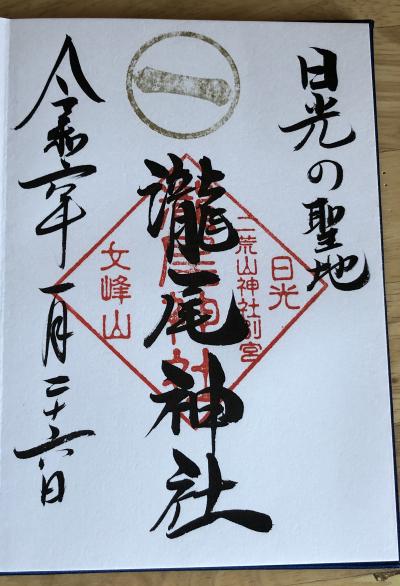 日光の聖地
一
日光
二荒山神社別宮
瀧尾神社
瀧尾神社
女峰山
令和六年一月二十六日